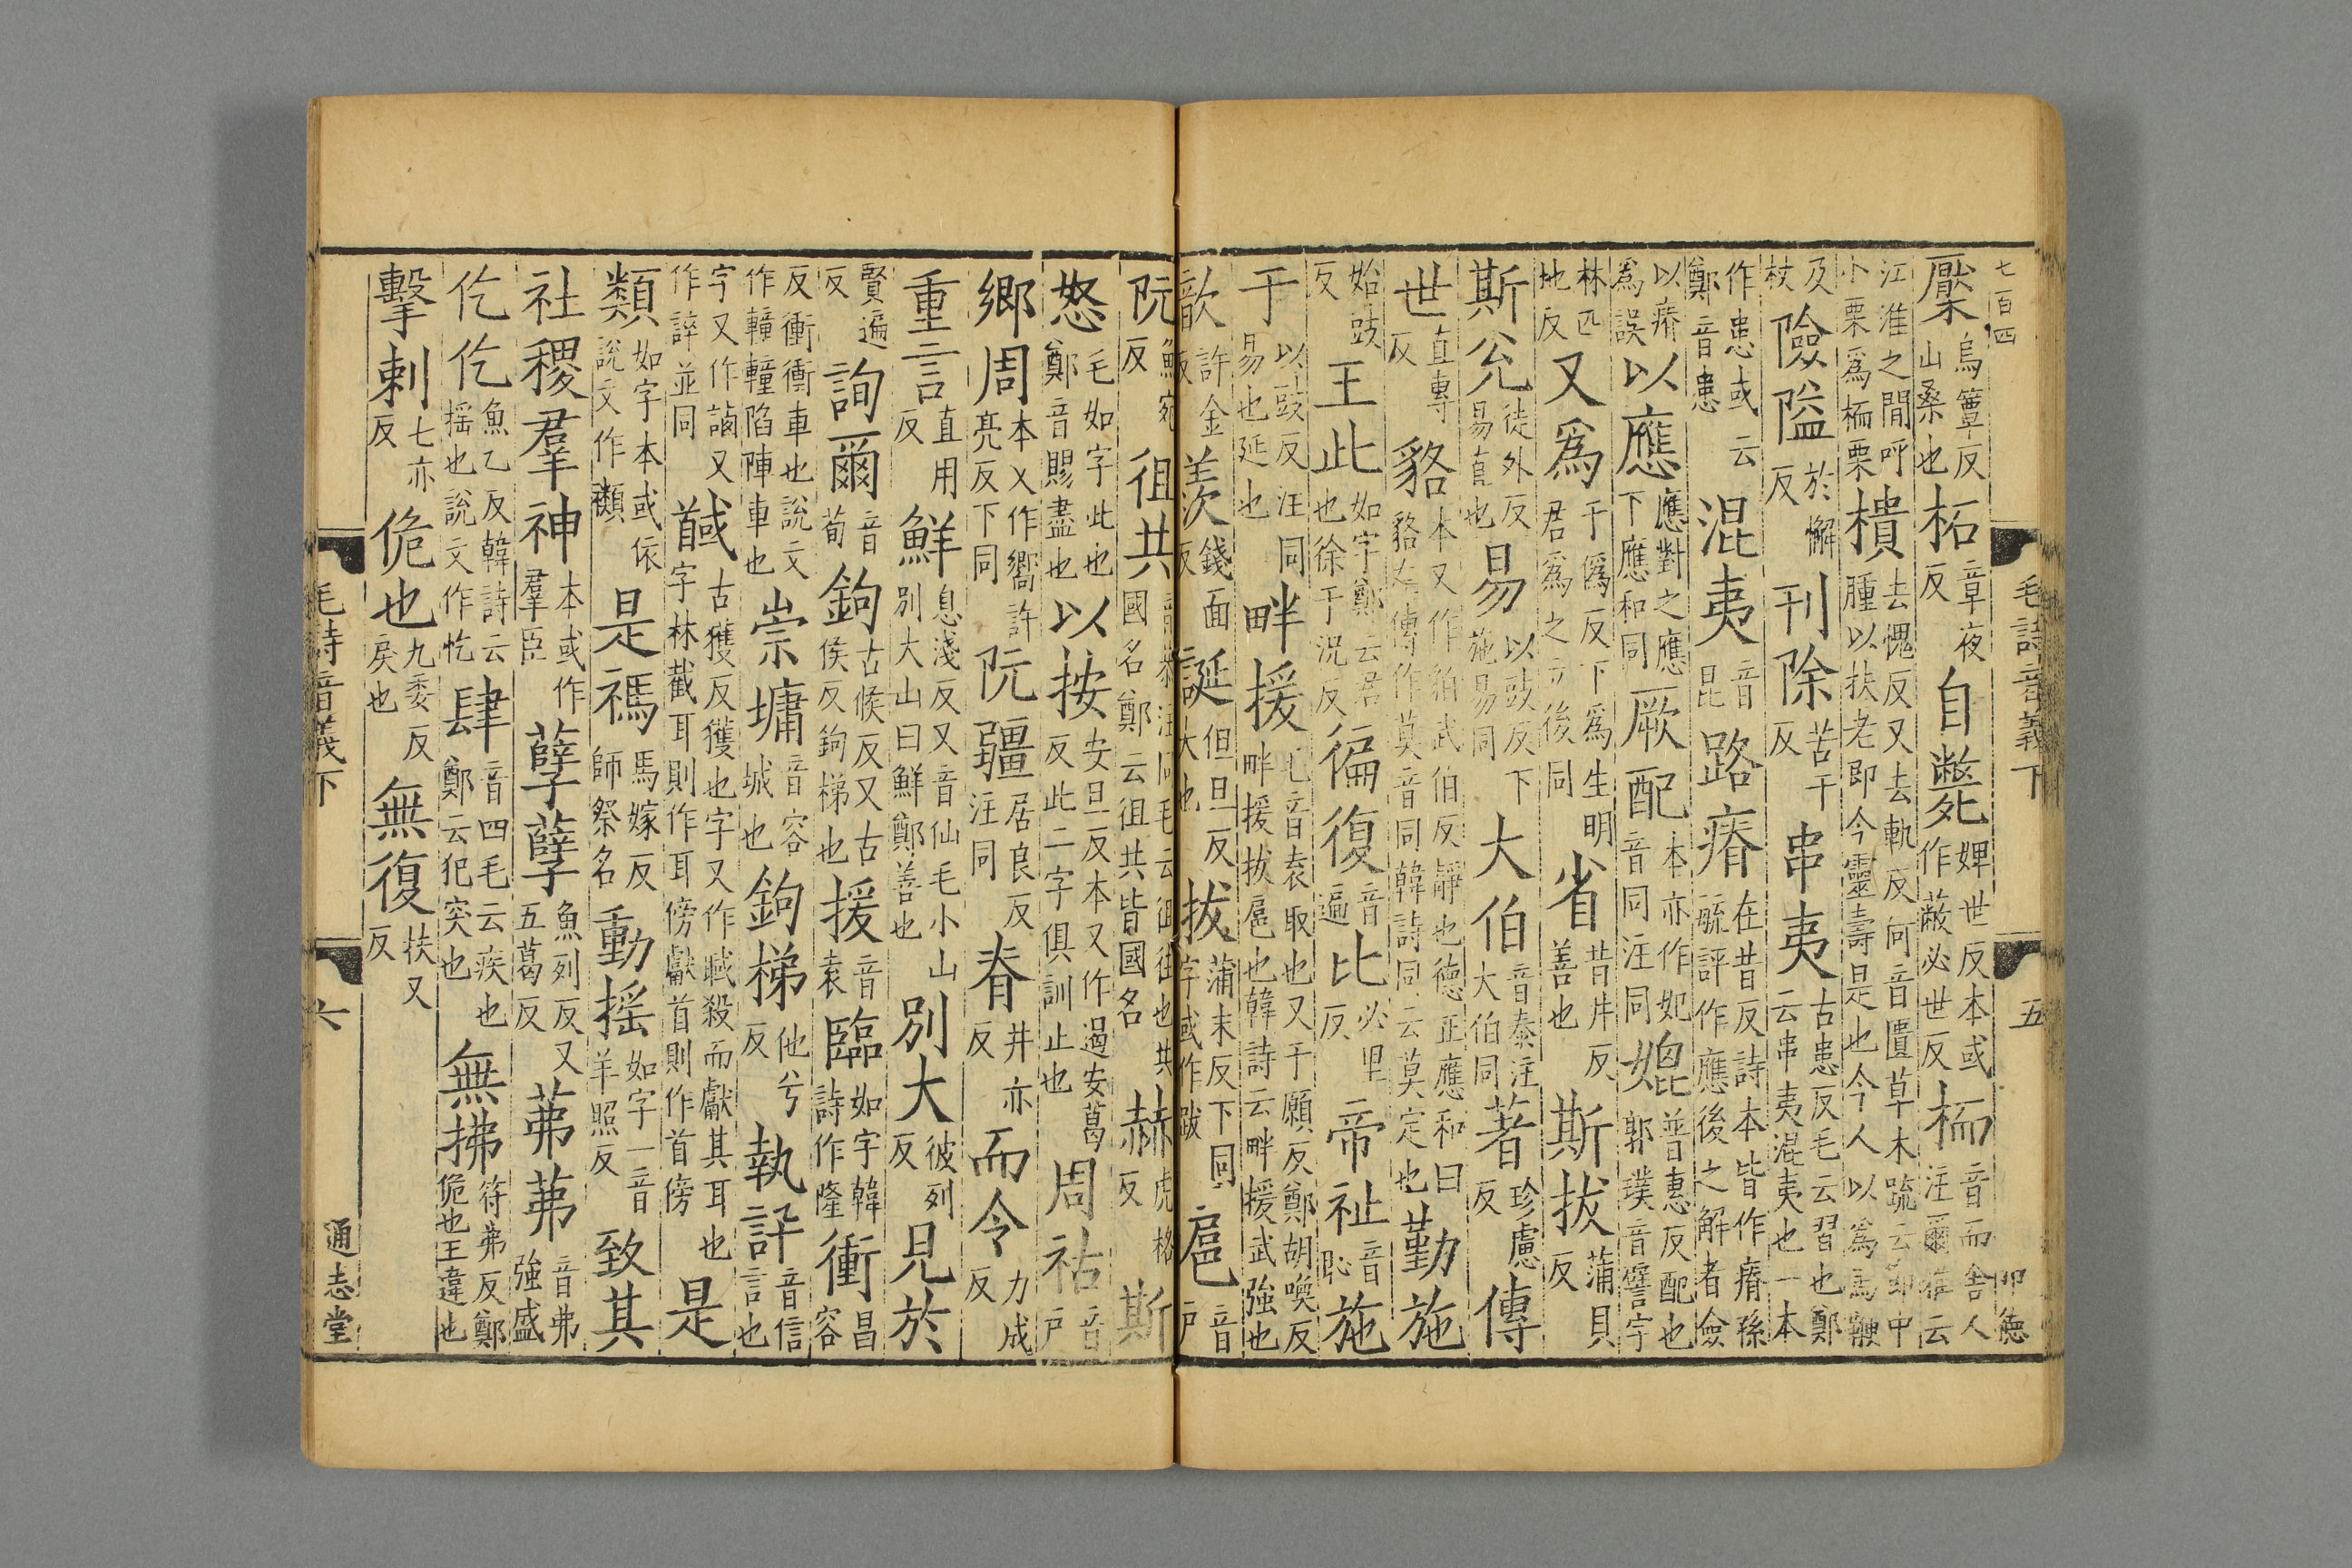 七百四
毛詩音義下 五
檿烏簟反山桑也柘章夜反自斃婢世反本或作蔽必世反栭音而舍人注爾雅云
江淮之閒呼小栗爲栭栗樻去愧反又去軌反何音匱草木疏云節中腫以扶老即今靈壽是也今人以爲馬鞭
及杖險隘於懈反刊除苦干反串夷古患反毛云習也鄭云串夷混夷也一本
作患或云鄭音患混夷音昆路瘠在昔反詩本皆作瘠孫毓評作應後之解者僉
以瘠爲誤以應應對之應下應和同厥配本亦作妃音同注同媲普惠反配也郭璞音譬字
林匹地反又爲于僞反下爲生明君爲之立後同省昔井反善也斯拔蒲貝反
斯兊徒外反易直也易以豉反下施易同大伯音泰注大伯同著珍慮反傳
世直專反貉本又作貊武伯反靜也德正應和曰貉左傳作莫音同韓詩同云莫定也勤施
始豉反王此如字鄭云君也徐于況反徧復音遍比必里反帝祉音恥施
于以豉反注同易也延也畔援毛音袁取也又于願反鄭胡喚反畔援拔扈也韓詩云畔援武強也
歆許金反羨錢面反誕但旦反大也拔蒲末反下同字或作跋扈音戶
阮魚宛反徂共音恭注同毛云徂往也共國名鄭云徂共皆國名赫虎格反斯
怒毛如字此也鄭音賜盡也以按安旦反本又作遏安葛反此二字俱訓止也周祜音戶
鄉周本乂作嚮許亮反下同阮疆居良反注同脊井亦反而令力成反
重言直用反鮮息淺反又音仙毛小山別大山曰鮮鄭善也別大彼列反見於
賢遍反詢爾音荀鉤古候反又古侯反鉤梯也援音袁臨如字韓詩作隆衝昌容
反衝衝車也說文作䡴䡴陷陣車也崇墉音容城也鉤梯他兮反執訊音信言也
字又作又作誶並同馘古獲反獲也字又作聝殺而獻其耳也字林截耳則作耳傍獻首則作首傍是
類如字本或依說文作禷是禡馬嫁反師祭名動搖如字一音羊照反致其
社稷羣神本或作羣臣孽孽魚列反又五葛反茀茀音弗強盛
仡仡魚乙反韓詩云搖也說文作忔肆音四毛云疾也鄭云犯突也無拂符弗反鄭佹也王違也
擊刺七亦反佹也九委反戾也無復扶又反
毛詩音義下 六 通志堂